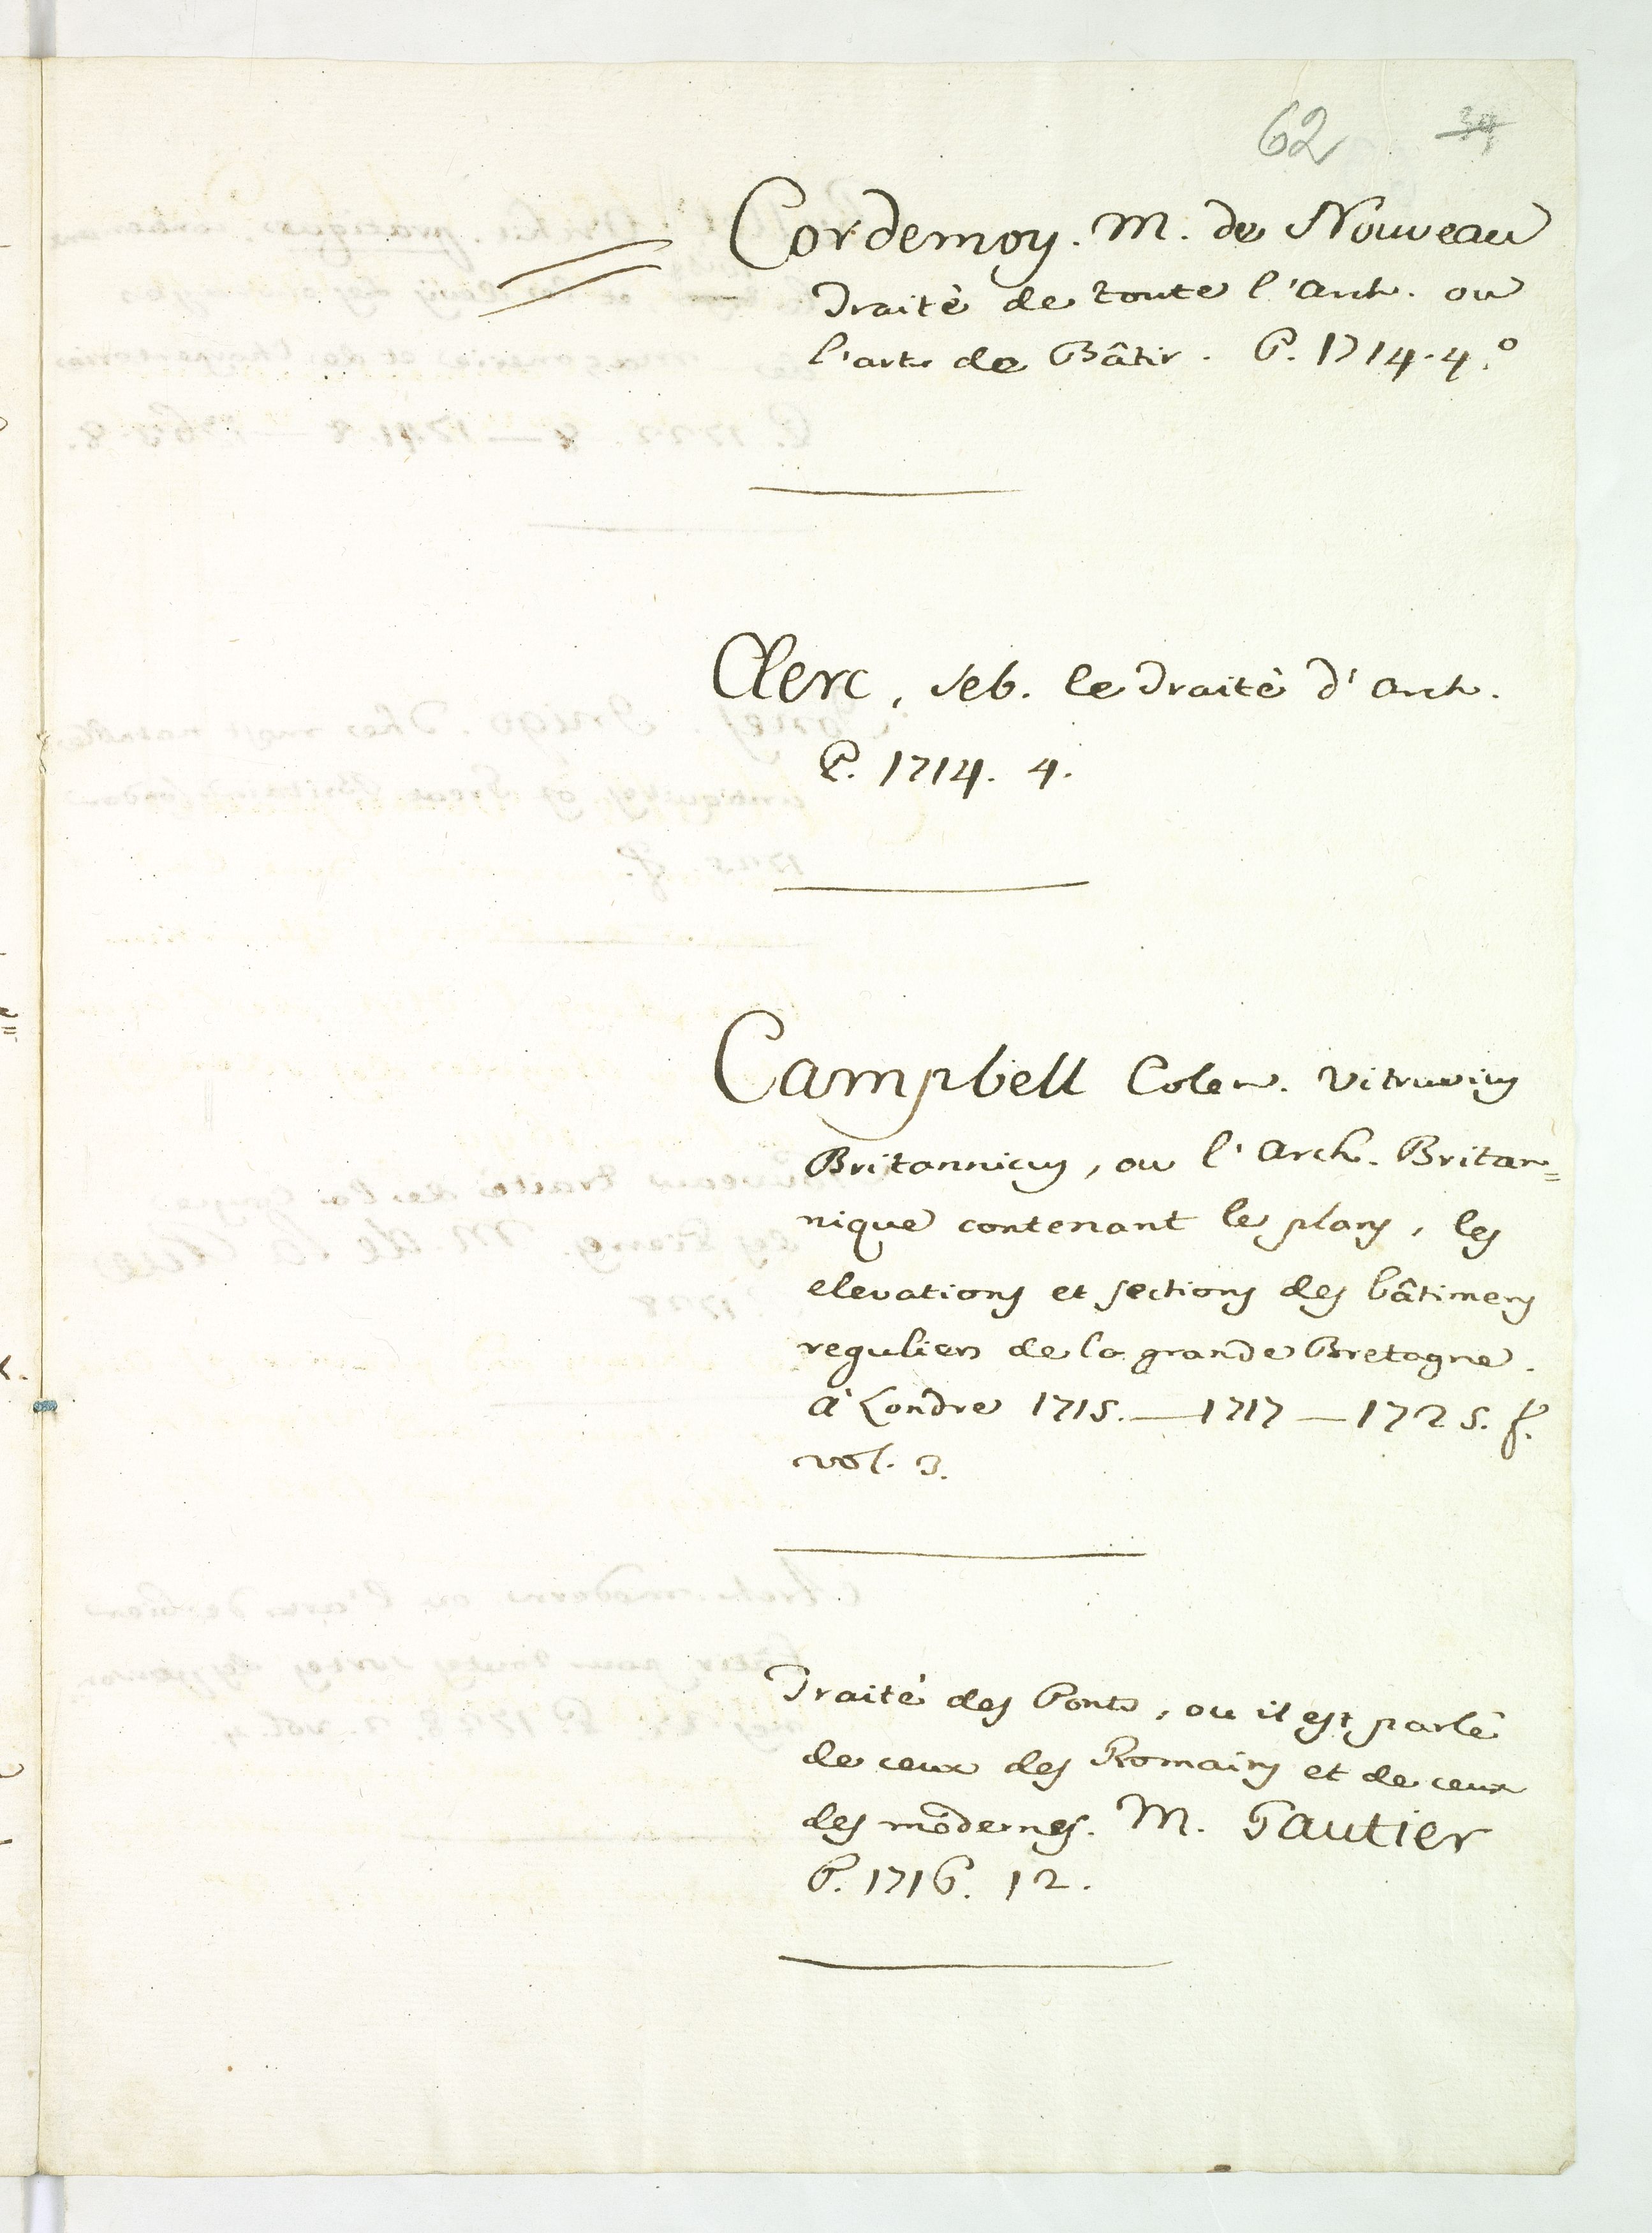 62 39
Cordemoy. M. de Nouveau
Traité de toute l'Arch. ou
l'art de Bâtir. P. 1714. 4.°
Clerc, Seb. le Traité d'Arch.
P. 1714. 4.
Campbell Colen. Vitruvius
Britannicus, ou l'Arch. Britan=
nique contenant les plans, les
elevations et sections des bâtimens
reguliers de la grande Bretagne.
à Londre 1715. — 1717 — 1725. f.
vol. 3.
Traité des Ponts, ou il est parlé
de ceux des Romains et de ceux
des modernes. M. Gautier
P. 1716. 12.